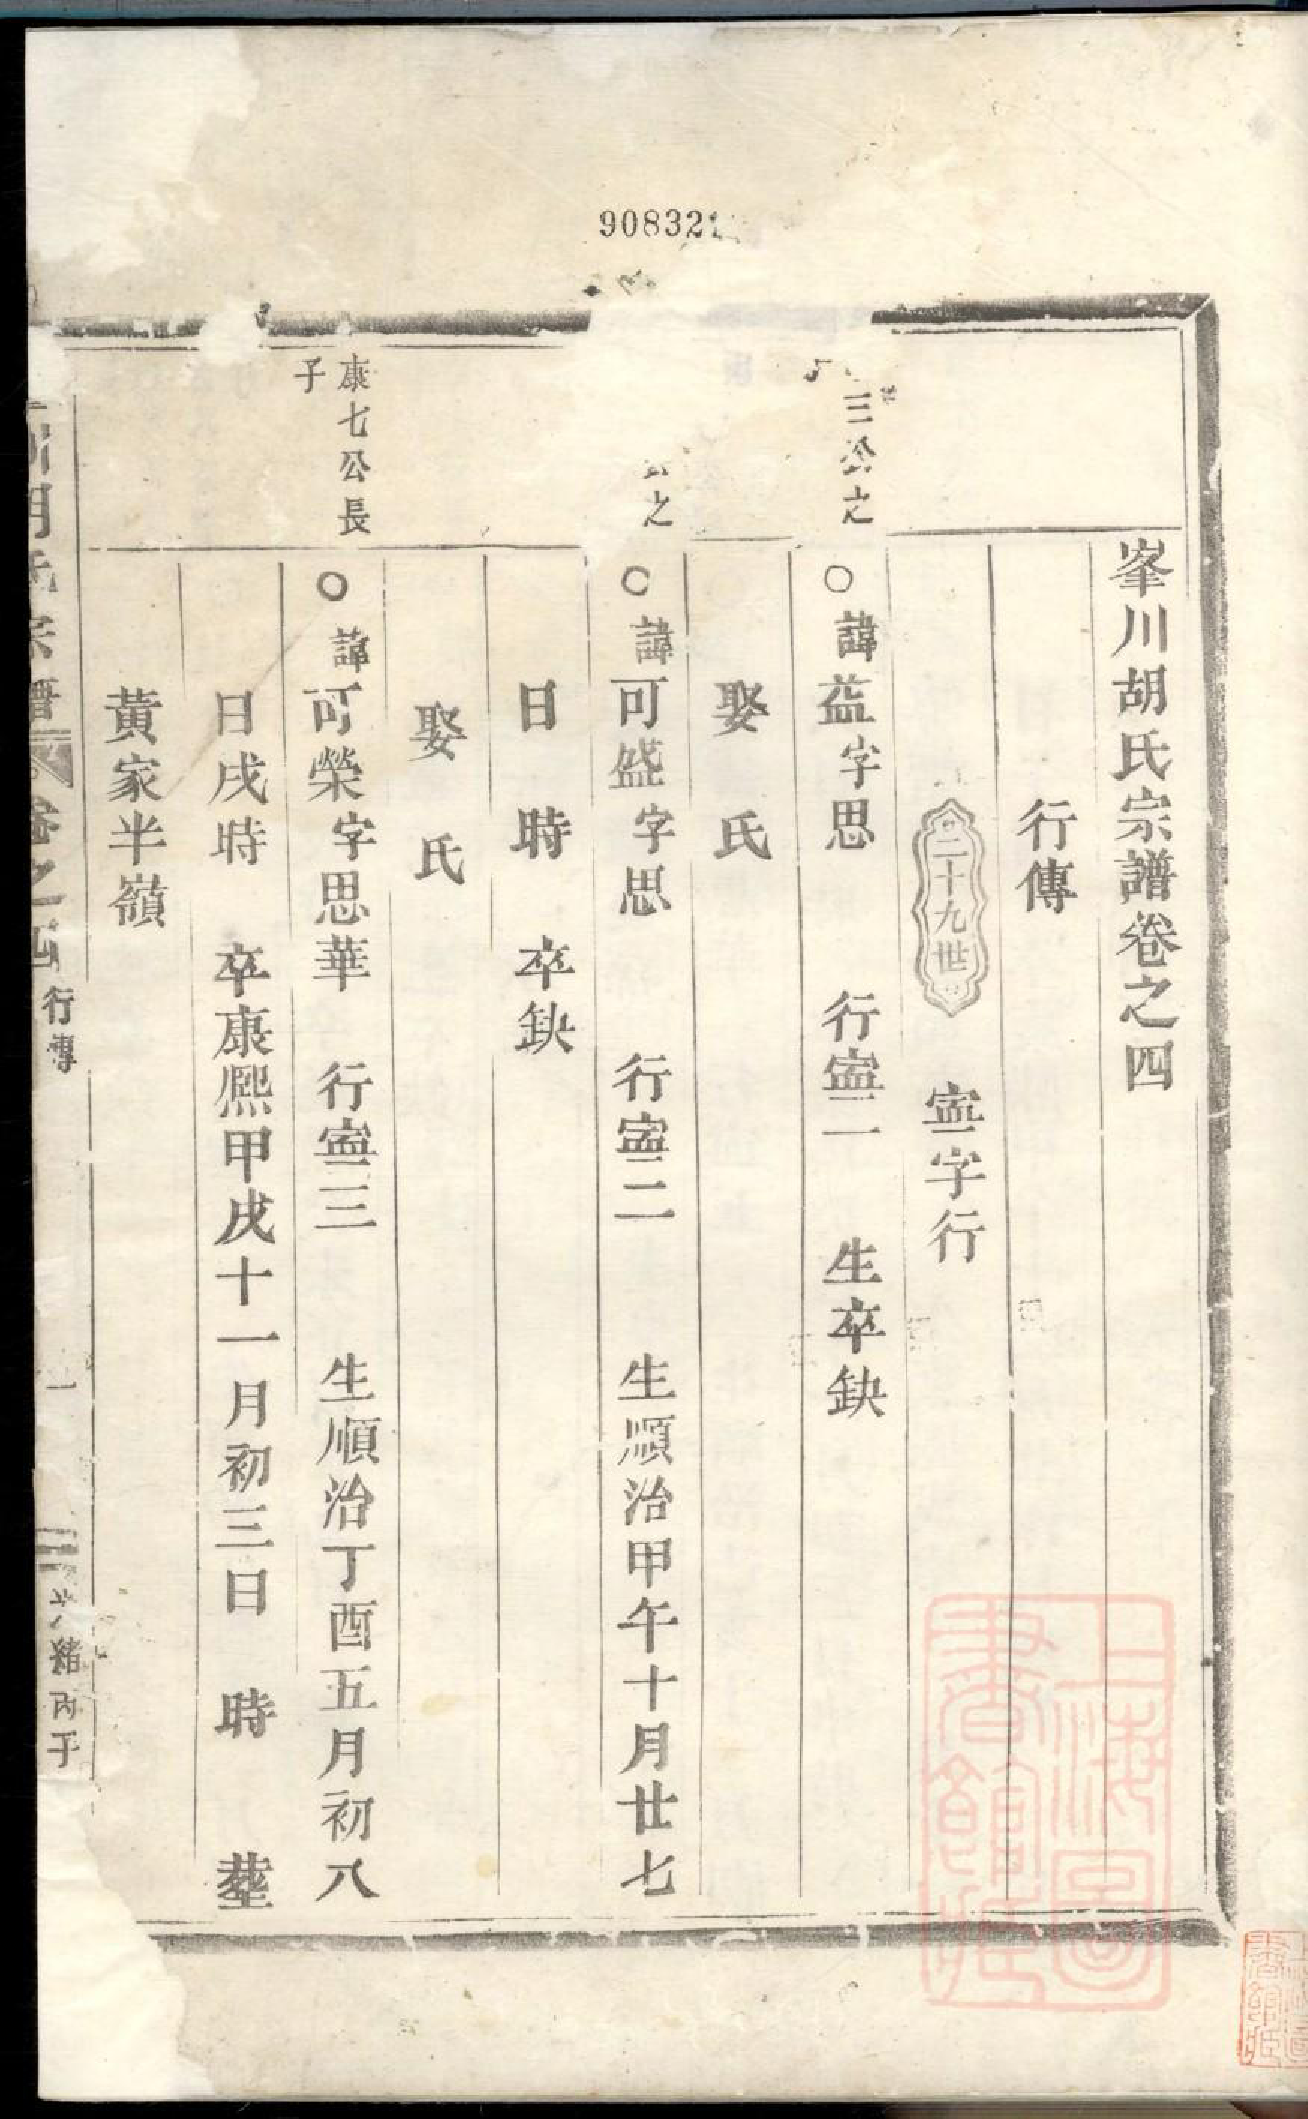 908321
峯川胡氏宗譜卷之四
行傳
二十九世 寍字行
三公之
○諱益字思 行寍一 生卒缺
娶 氏
公之
○諱可盛字思 行寍二 生順治甲午十月廿七
日 時 卒缺
娶 氏
康七公長
子
○諱可榮字思華 行寍三 生順治丁酉五月初八
日戌時 卒康熙甲戌十一月初三日 時 塟
黃家半嶺
川胡氏宗譜 卷之四 行傳 一 光緒丙子
上海圖
書館藏